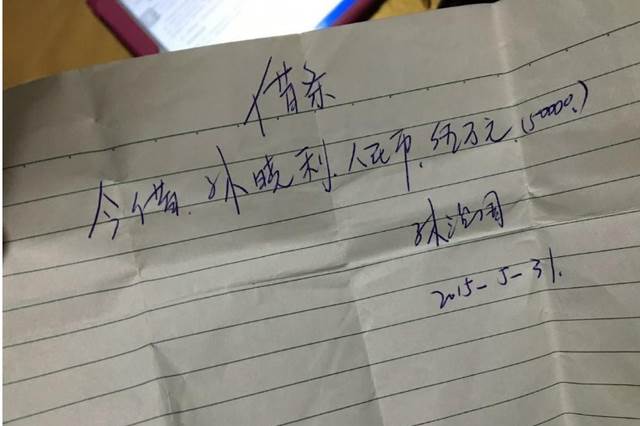 借条
今借.孙晓利.人民币.伍万元.(50000.)
2015-5-31.